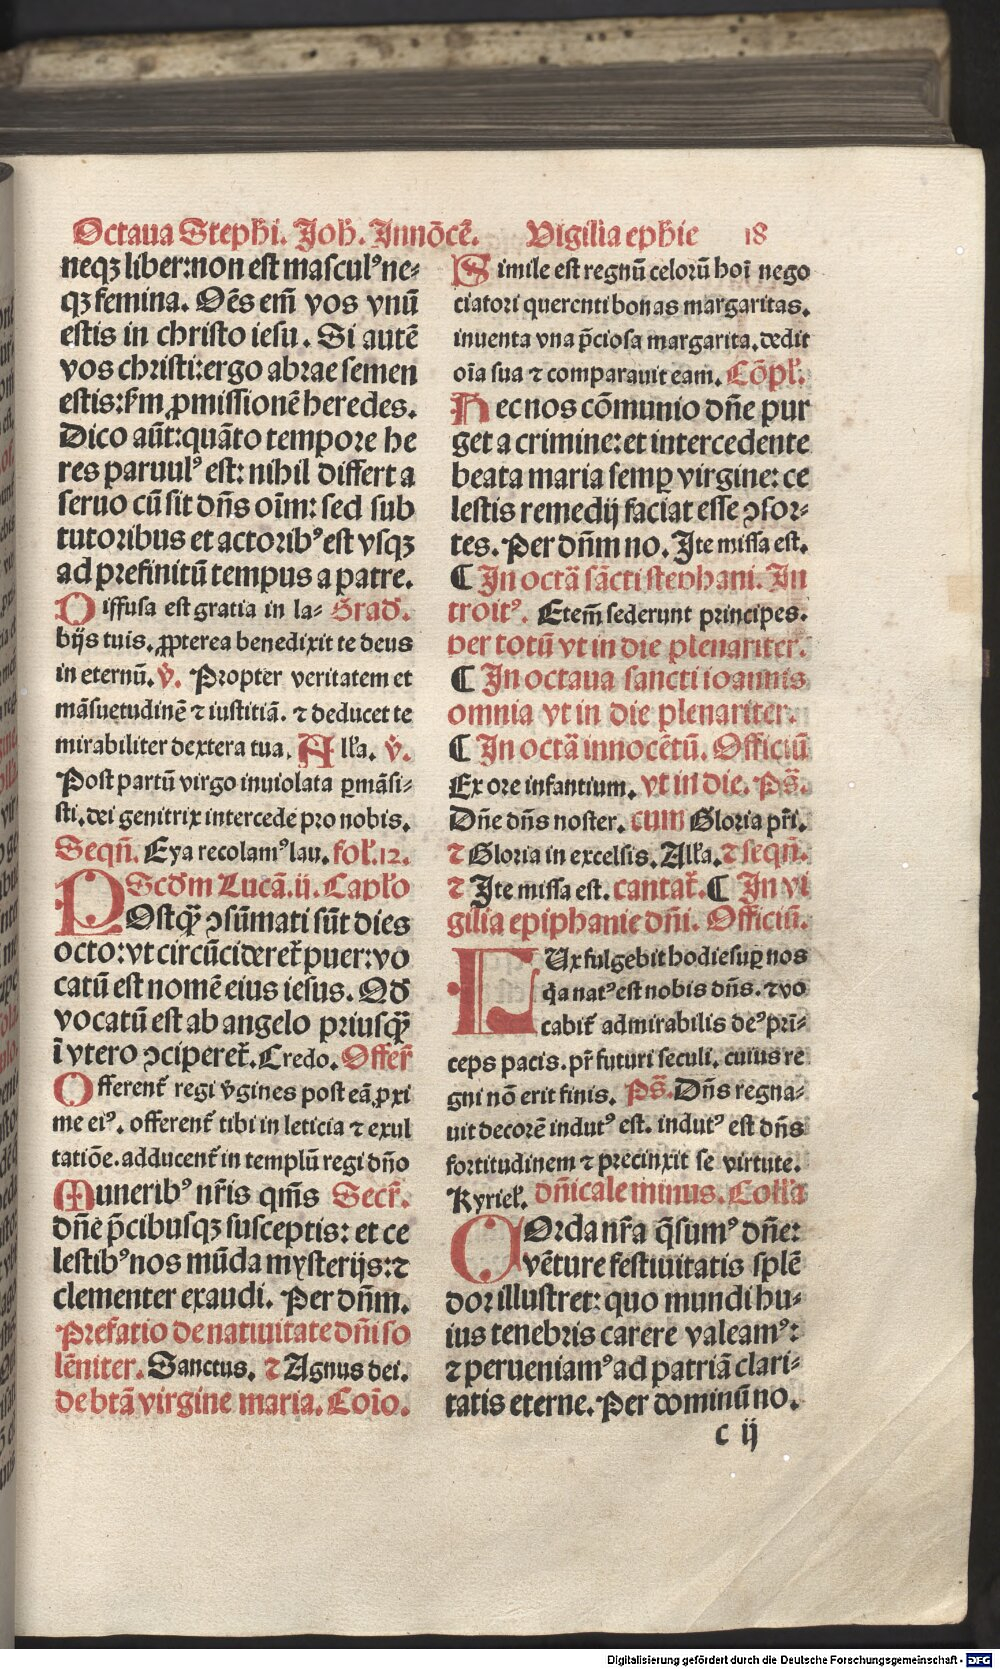 Octaua Stephi. Joh. Innōcē. Vigilia ephie 18
neqꝫ liber: non est masculꝰ ne⸗
qꝫ femina. Oēs em̄ vos vnū
estis in christo iesu. Si autē
vos christi: ergo abrae semen
estis: ẜm ꝓmissionē heredes.
Dico aūt: quāto tempore he
res paruulꝰ est: nihil differt a
seruo cū sit dn̄s oīm: sed sub
tutoribus et actoribꝰ est vsqꝫ
ad prefinitū tempus a patre.
Diffusa est gratia in la⸗ Grad̄.
bijs tuis. ꝓpterea benedixit te deus
in eternū. v̄. Propter veritatem et
māsuetudinē ⁊ iustitiā. ⁊ deducet te
mirabiliter dextera tua. Alła. v̄.
Post partū virgo inuiolata ꝑmāsi⸗
sti. dei genitrix intercede pro nobis.
Seqn̄. Eya recolamꝰ lau. foł. 12.
Scdm Lucā. ii. Capło
POstꝙ̄ ꝯsūmati sūt dies
octo: vt circūcideret̄ puer: vo
catū est nomē eius iesus. Qd̄
vocatū est ab angelo priusꝙ̄
ī vtero ꝯciperet̄. Credo. Offer̄
Offerent̄ regi v̄gines post eā. ꝓxi
me eiꝰ. offerent̄ tibi in leticia ⁊ exul
tatiōe. adducent̄ in templū regi dn̄o
Muneribꝰ nr̄is qm̄s Secr̄.
dn̄e p̄cibusqꝫ susceptis: et ce
lestibꝰ nos mūda mysterijs: ⁊
clementer exaudi. Per dn̄m.
Prefatio de natiuitate dn̄i so
lēniter. Sanctus. ⁊ Agnus dei.
de btā virgine maria. Coīo.
Simile est regnū celorū hoī nego
ciatori querenti bonas margaritas.
inuenta vna p̄ciosa margarita. dedit
oīa sua ⁊ comparauit eam. Cōpł.
Hec nos cōmunio dn̄e pur
get a crimine: et intercedente
beata maria semꝑ virgine: ce
lestis remedij faciat esse ꝯsor⸗
tes. Per dn̄m no. Ite missa est.
¶ In octā sācti stephani. In
troitꝰ. Etem̄ sederunt principes.
per totū vt in die plenariter.
¶ In octaua sancti ioannis
omnia vt in die plenariter.
¶ In octā innocētū. Officiū
Ex ore infantium. vt in die. Ps̄.
Dn̄e dn̄s noster. cum Gloria pr̄i.
⁊ Gloria in excelsis. Alła. ⁊ seqn̄.
⁊ Ite missa est. cantat̄. ¶ In vi
gilia epiphanie dn̄i. Officiū.
LUx fulgebit hodie suꝑ nos
q̄a natꝰ est nobis dn̄s. ⁊ vo
cabit̄ admirabilis deꝰ prī⸗
ceps pacis. pr̄ futuri seculi. cuius re
gni nō erit finis. Ps̄. Dn̄s regna⸗
uit decorē indutꝰ est. indutꝰ est dn̄s
fortitudinem ⁊ precinxit se virtute.
Kyrieł. dn̄icale minus. Colła
COrda nr̄a q̄sumꝰ dn̄e:
vēture festiuitatis splē
dor illustret: quo mundi hu⸗
ius tenebris carere valeamꝰ:
⁊ perueniamꝰ ad patriā clari⸗
tatis eterne. Per dominū no.
c ij
Digitalisierung gefördert durch die Deutsche Forschungsgemeinschaft - DFG